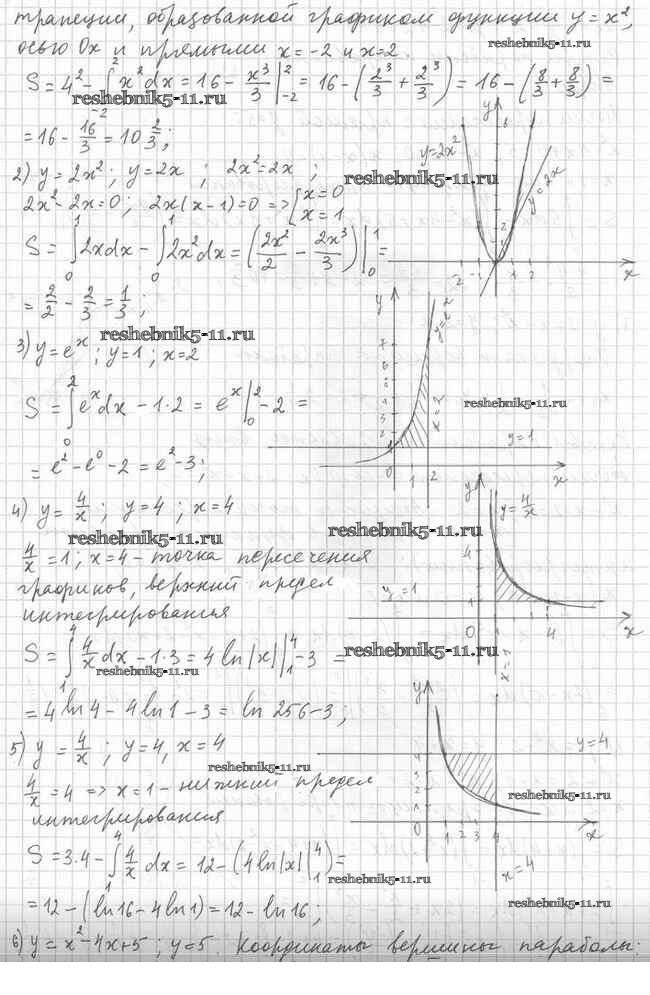 трапеции, образованной графиком функции y = x²,
осью Ox и прямыми x = -2 и x = 2.
reshebnik5-11.ru
S = 4² - ∫₋₂² x² dx = 16 - x³/3 |₋₂² = 16 - (2³/3 + 2³/3) = 16 - (8/3 + 8/3) =
reshebnik5-11.ru
= 16 - 16/3 = 10 2/3;
2) y = 2x²; y = 2x; 2x² = 2x;
reshebnik5-11.ru
2x² - 2x = 0; 2x(x - 1) = 0 => [x = 0
x = 1
S = ∫₀¹ 2x dx - ∫₀¹ 2x² dx = (2x²/2 - 2x³/3) |₀¹ =
= 2/2 - 2/3 = 1/3;
y
8
y = 2x²
y = 2x
2
-2 -1 1 2
x
reshebnik5-11.ru
3) y = eˣ; y = 1; x = 2
S = ∫₀² eˣ dx - 1·2 = eˣ |₀² - 2 =
= e² - e⁰ - 2 = e² - 3;
y
7
6
5
4
3
2
1
x = 2
reshebnik5-11.ru
y = 1
0 1 2
x
4) y = 4/x; y = 4; x = 4
reshebnik5-11.ru
reshebnik5-11.ru
4/x = 1; x = 4 - точка пересечения
графиков, верхний предел
интегрирования
S = ∫₁⁴ 4/x dx - 1·3 = 4 ln|x| |₁⁴ - 3 =
reshebnik5-11.ru
reshebnik5-11.ru
= 4 ln 4 - 4 ln 1 - 3 = ln 256 - 3;
y
y = 4/x
4
y = 1
1
0
4
x
x = 1
5) y = 4/x; y = 4, x = 4
reshebnik5-11.ru
4/x = 4 => x = 1 - нижний предел
интегрирования
S = 3·4 - ∫₁⁴ 4/x dx = 12 - (4 ln|x| |₁⁴) =
reshebnik5-11.ru
= 12 - (ln 16 - 4 ln 1) = 12 - ln 16;
y
y = 4
4
3
2
1
reshebnik5-11.ru
0 1 2 3 4
x
x = 4
reshebnik5-11.ru
6) y = x² - 4x + 5; y = 5. Координаты вершины параболы: